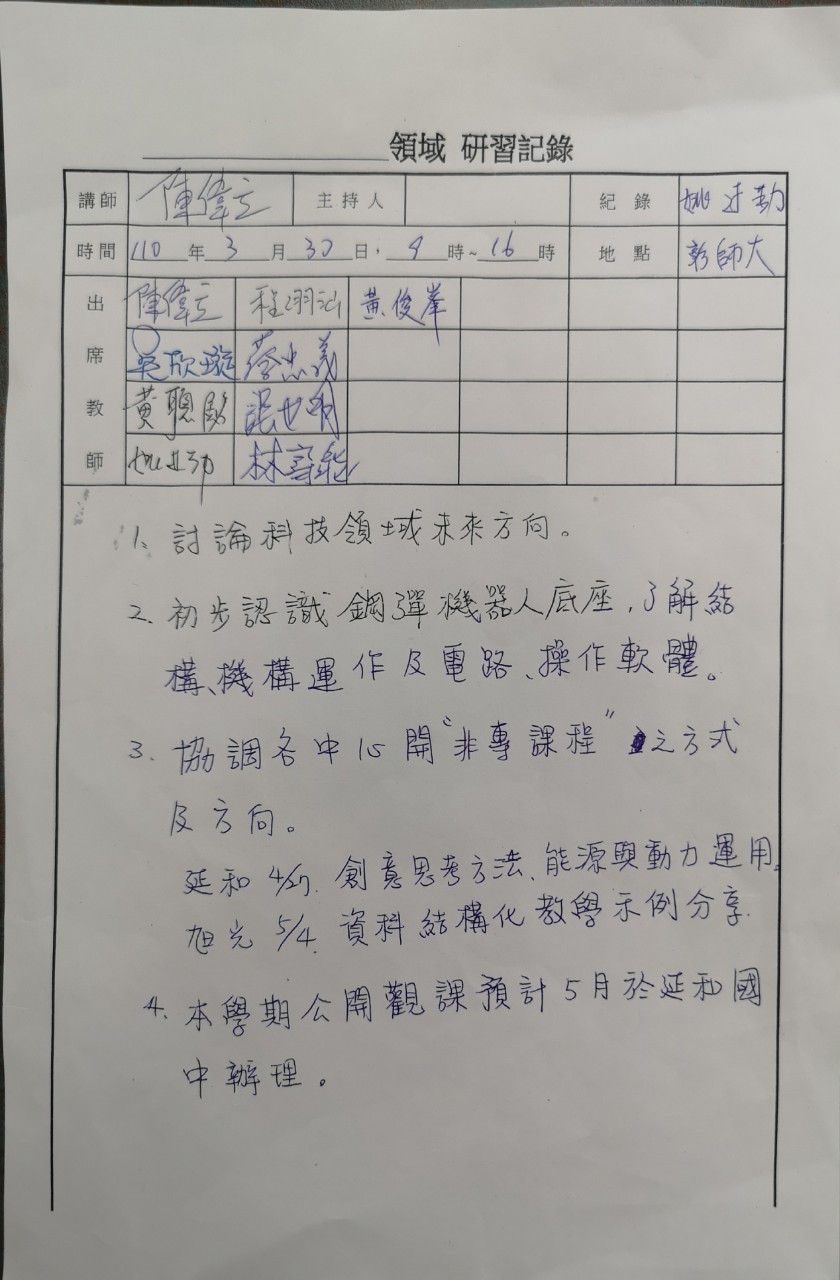 領域 研習記錄
講師 陳偉立 主持人 紀錄
時間 110 年 3 月 30 日, 9 時~ 16 時 地點 彰師大
出 陳偉立 黃俊峯
席 吳欣璇 蔡忠義
教 黃聰
師 林
1. 討論科技領域未來方向。
2. 初步認識鋼彈機器人底座,了解結
構、機構運作及電路、操作軟體。
3. 協調各中心開"非專課程"之方式
及方向。
延和 4/27. 創意思考方法、能源與動力運用。
旭光 5/4. 資料結構化教學示例分享.
4. 本學期公開觀課預計5月於延和國
中辦理。